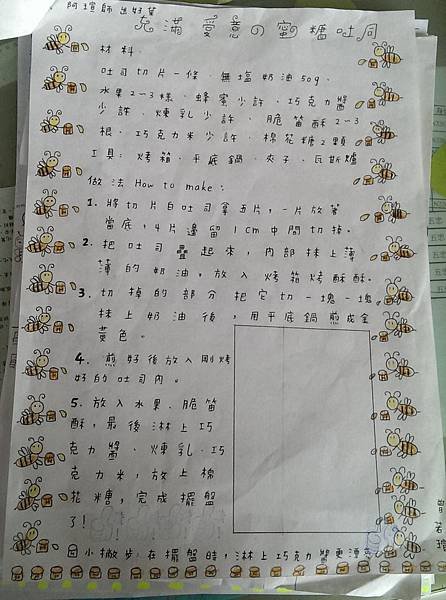 阿瑄師出好菜
充滿愛意の蜜糖吐司
材料:
吐司切片一條、無塩奶油50g、
水果2~3樣、蜂蜜少許、巧克力醬
少許、煉乳少許、脆笛酥2~3
根、巧克力米少許、棉花糖2顆
工具:烤箱、平底鍋、夾子、瓦斯爐
做法 How to make:
1. 將切片白吐司拿五片,一片放著
當底,4片邊留1cm中間切掉。
2. 把吐司疊起來,內部抹上薄
薄的奶油,放入烤箱烤酥酥。
3. 切掉的部分把它切一塊一塊,
抹上奶油後,用平底鍋煎成金
黃色。
4. 煎好後放入剛烤
好的吐司內。
5. 放入水果、脆笛
酥,最後淋上巧
克力醬、煉乳、巧
克力米,放上棉
花糖,完成擺盤
了!
小撇步:在擺盤時,淋上巧克力醬更漂亮
曾若瑄